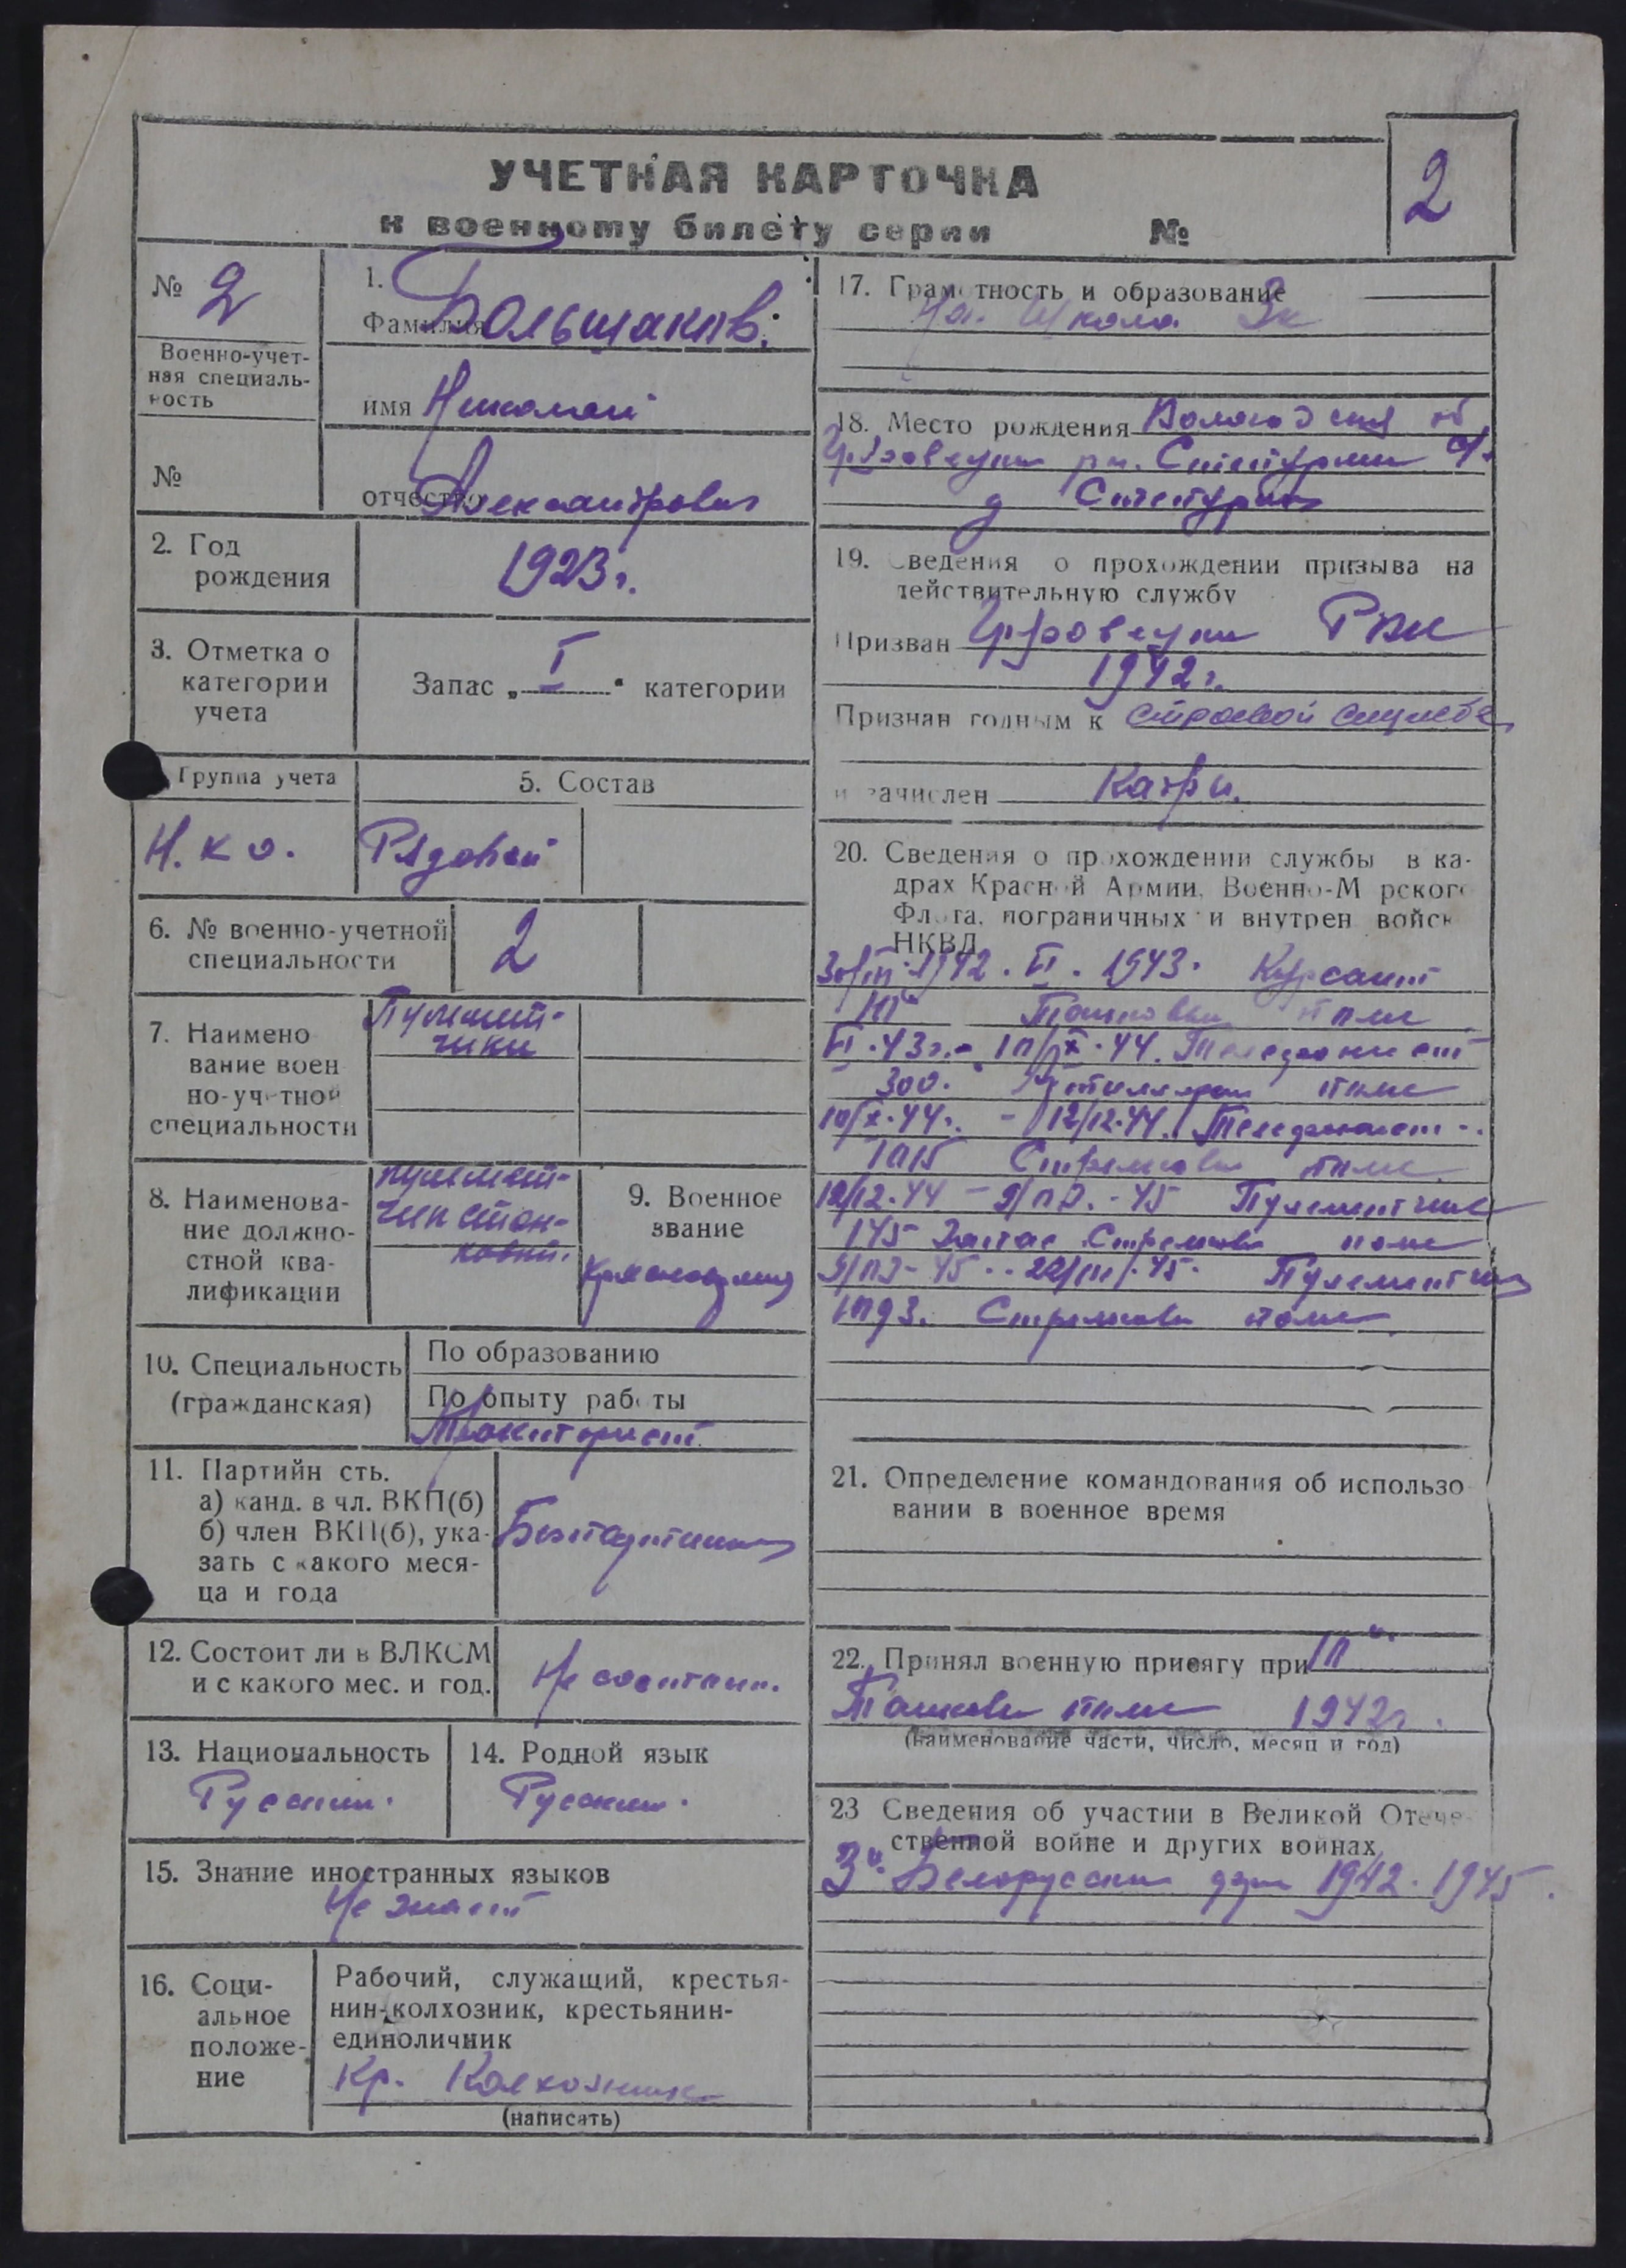 УЧЕТНАЯ КАРТОЧКА
к военному билету серии №
2
№ 2
Военно-учет-
ная специаль-
ность
№
1.
Фамилия Большаков
имя Николай
отчество Александрович
2. Год
рождения
1923 г.
3. Отметка о
категории
учета
Запас „ I “ категории
Группа учета
Н.к о.
5. Состав
Рядовой
6. № военно-учетной
специальности
2
7. Наимено
вание воен
но-учетной
специальности
Пулемет-
чики
8. Наименова-
ние должно-
стной ква-
лификации
пулемет-
чик стан-
ковый.
9. Военное
звание
Красноармеец
10. Специальность
(гражданская)
По образованию
По опыту работы
Тракторист
11. Партийн сть.
а) канд. в чл. ВКП(б)
б) член ВКП(б), ука-
зать с какого меся-
ца и года
Безпартийный
12. Состоит ли в ВЛКСМ
и с какого мес. и год.
Не состоит.
13. Национальность
Русский.
14. Родной язык
Русский.
15. Знание иностранных языков
Не знает
16. Соци-
альное
положе-
ние
Рабочий, служащий, крестья-
нин-колхозник, крестьянин-
единоличник
Кр. Колхозник
(написать)
17. Грамотность и образование
школа 3к
18. Место рождения Вологодская об
рн.
д
19. Сведения о прохождении призыва на
действительную службу
Призван РВК
1942 г.
Признан годным к строевой службе
и зачислен
20. Сведения о прохождении службы в ка-
драх Красной Армии, Военно-М рского
Флота, пограничных и внутрен войск
НКВД
1942. VI. 1943. Курсант
полк
VI.43г. - 10/IX.44. Телефонист
300. полк
10/X.44г. - 12/12.44. Телефонист
Стрелковый полк
12/12.44 - 45 Пулеметчик
145 Запас Стрелковый полк
45 - 22/III.45. Пулеметчик
Стрелковый полк
21. Определение командования об использо-
вании в военное время
22. Принял военную присягу при
полк 1942г.
(наименование части, число, месяц и год)
23 Сведения об участии в Великой Отече-
ственной войне и других войнах
3й Белорусский 1942. 1945.